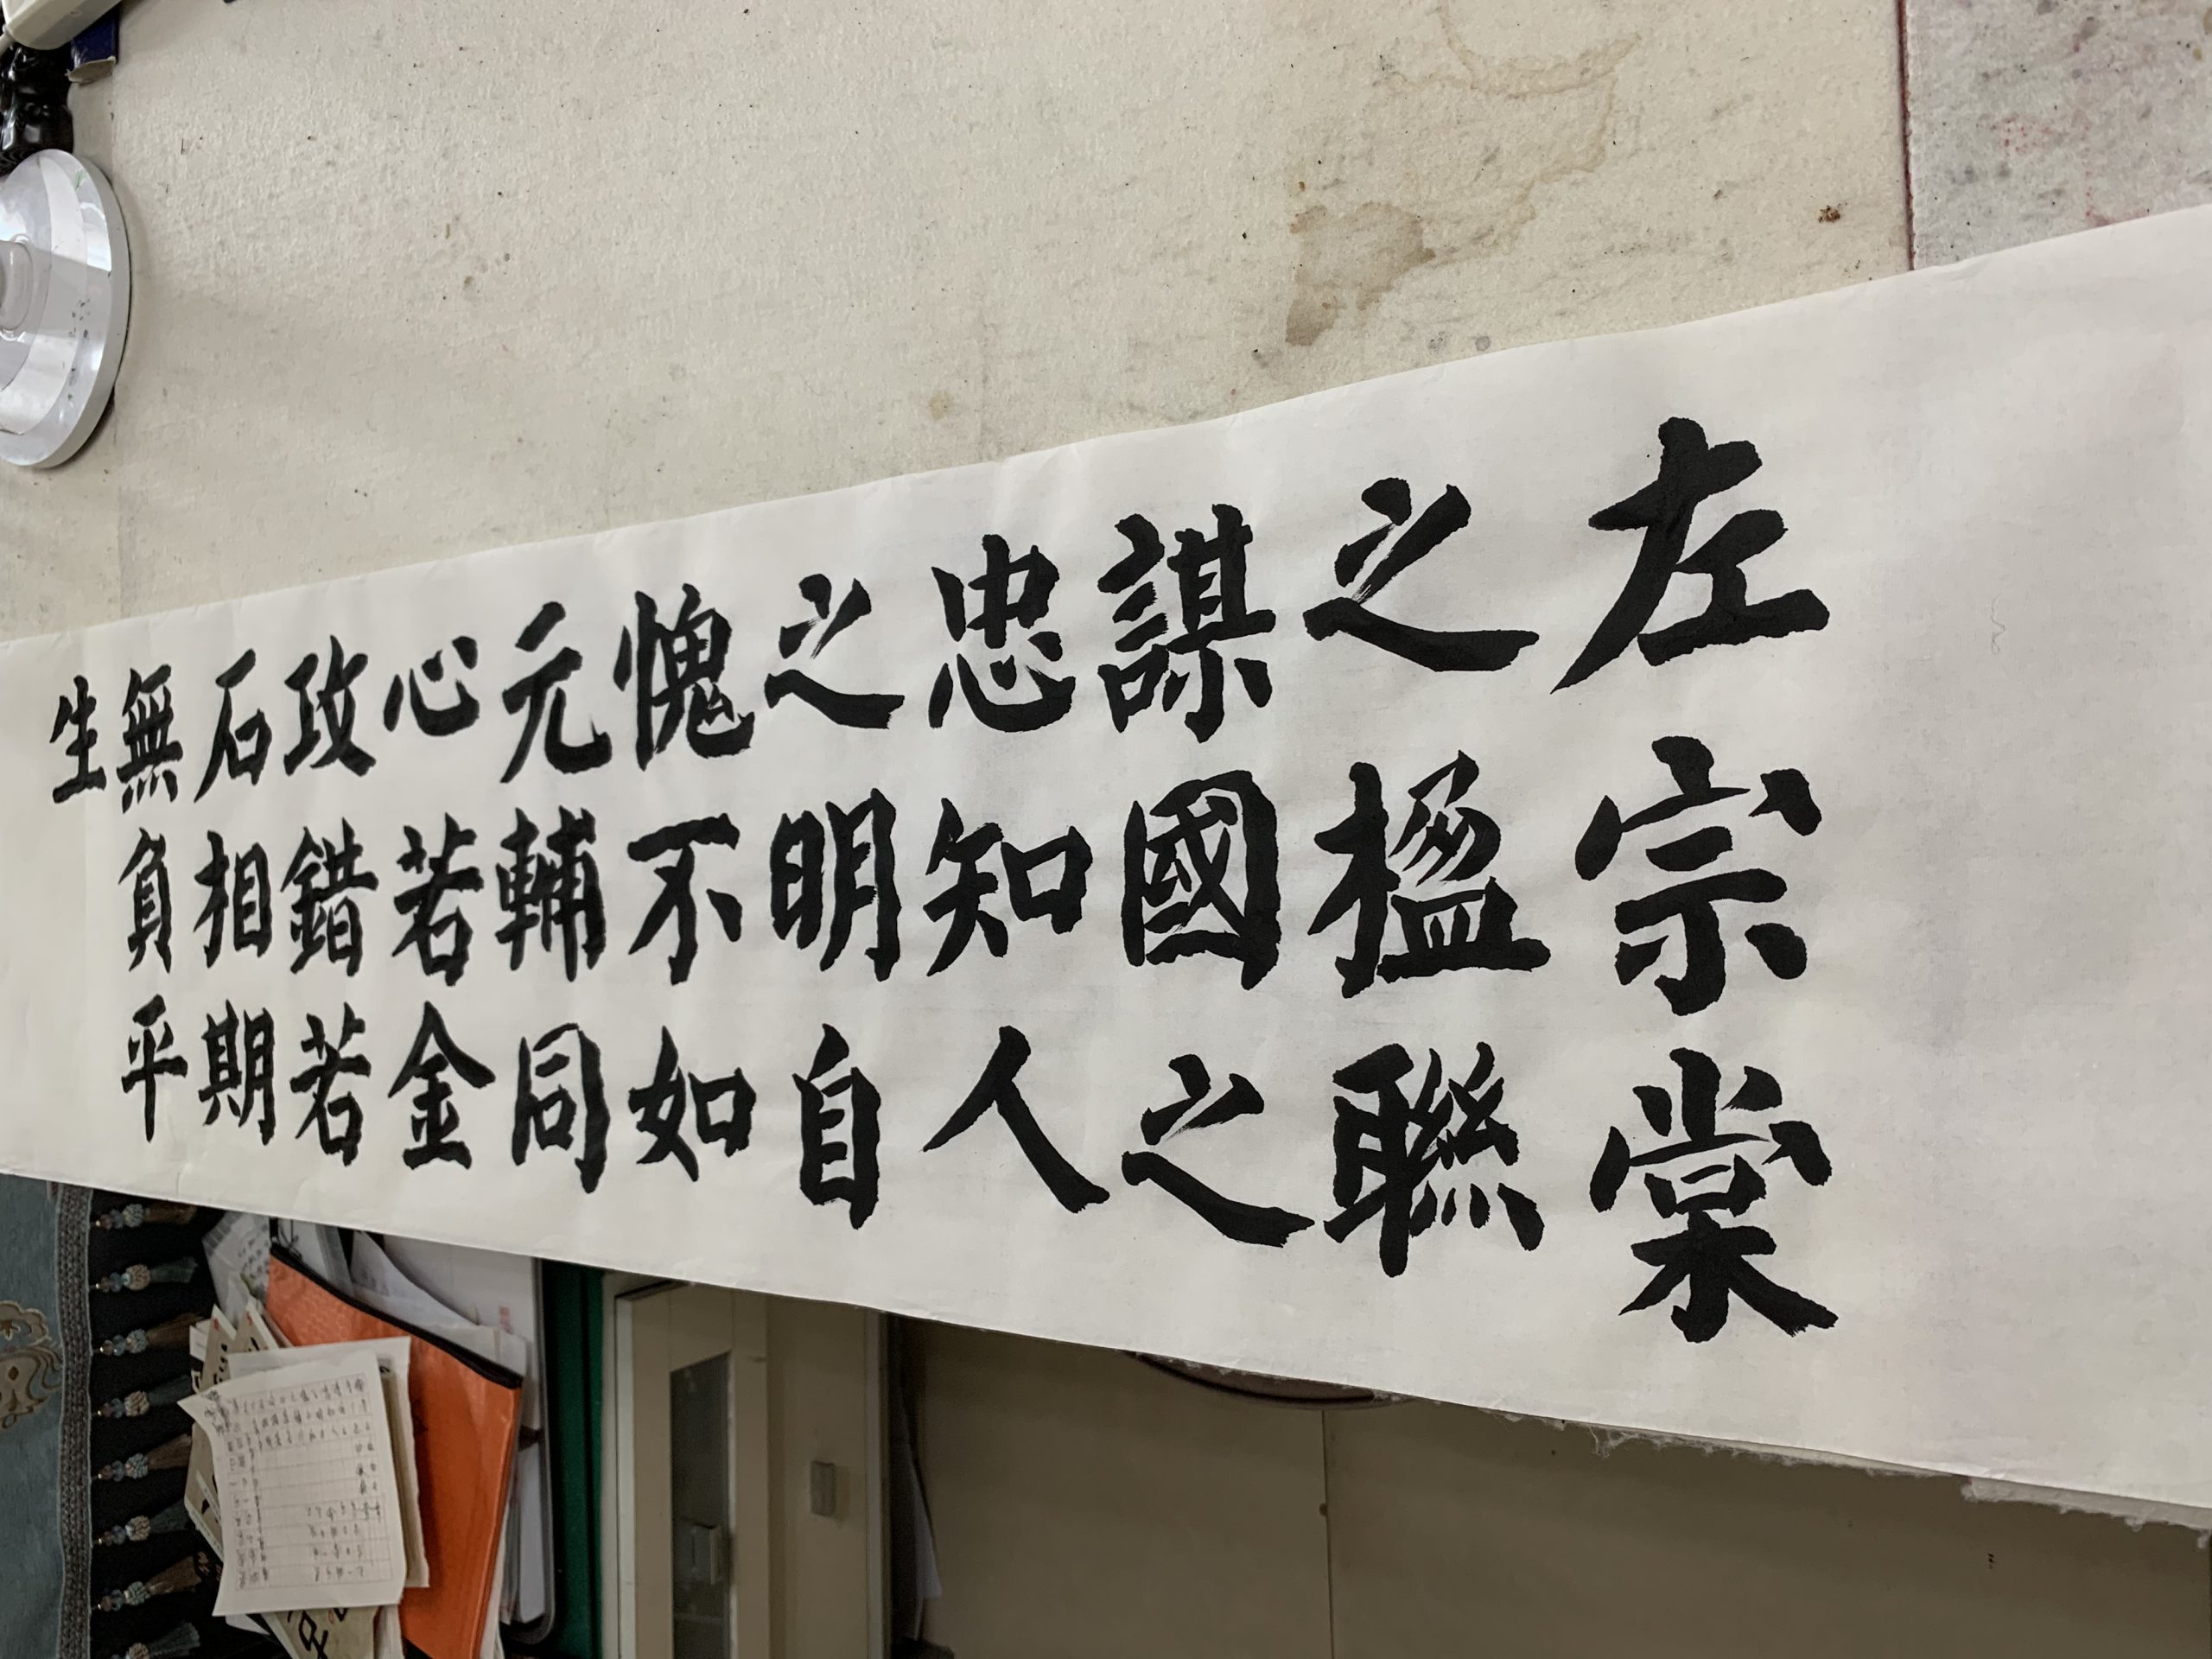 左宗棠
之楹聯
謀國之
忠知人
之明自
愧不如
元輔同
心若金
攻錯若
石相期
無負平
生